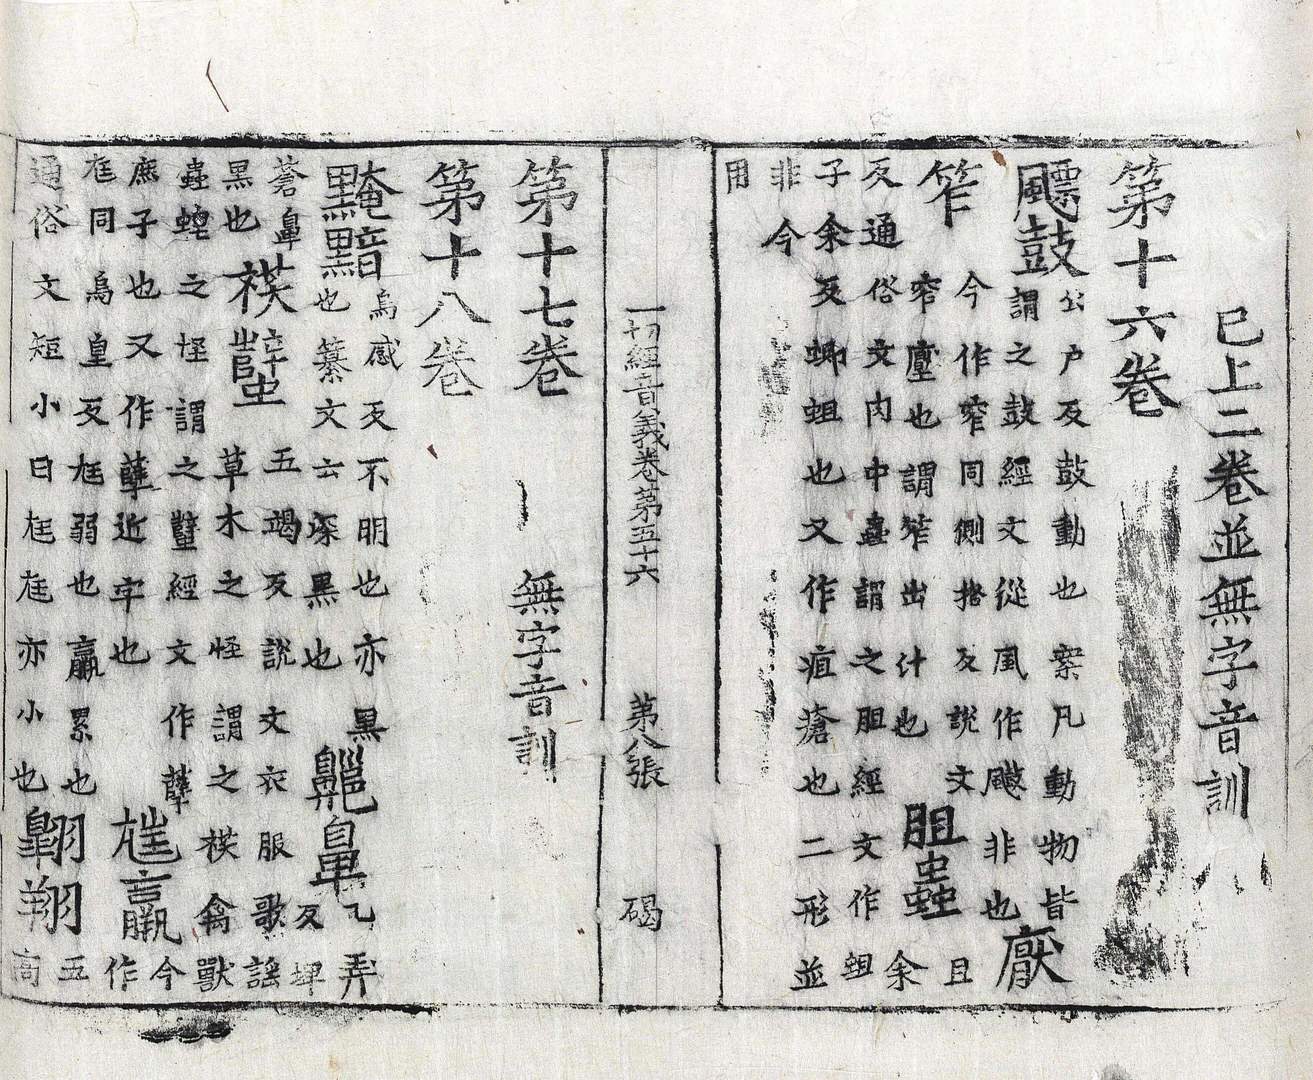 已上二卷並無字音訓
第十六卷
飃鼓公户反鼓動也案凡動物皆謂之鼓經文從風作颰非也厭
笮今作窄同側挌反說文窄壓也謂笮出汁也胆蟲且余
反通俗文肉中蟲謂之胆經文作蛆子余反蝍蛆也又作疽瘡也二形並
非今用
一切經音義卷第五十六 第八張 碣
第十七卷 無字音訓
第十八卷
黤黯烏感反不明也亦黑也纂文云深黑也齆鼻乙弄反埤
蒼鼻黑也䄏蠥五竭反說文衣服歌謡草木之怪謂之䄏禽獸
蟲蝗之怪謂之蠥經文作孽庶子也又作孽近字也尪羸今作
尪同烏皇反尪弱也羸累也通俗文短小曰尪尪亦小也翱翔五高